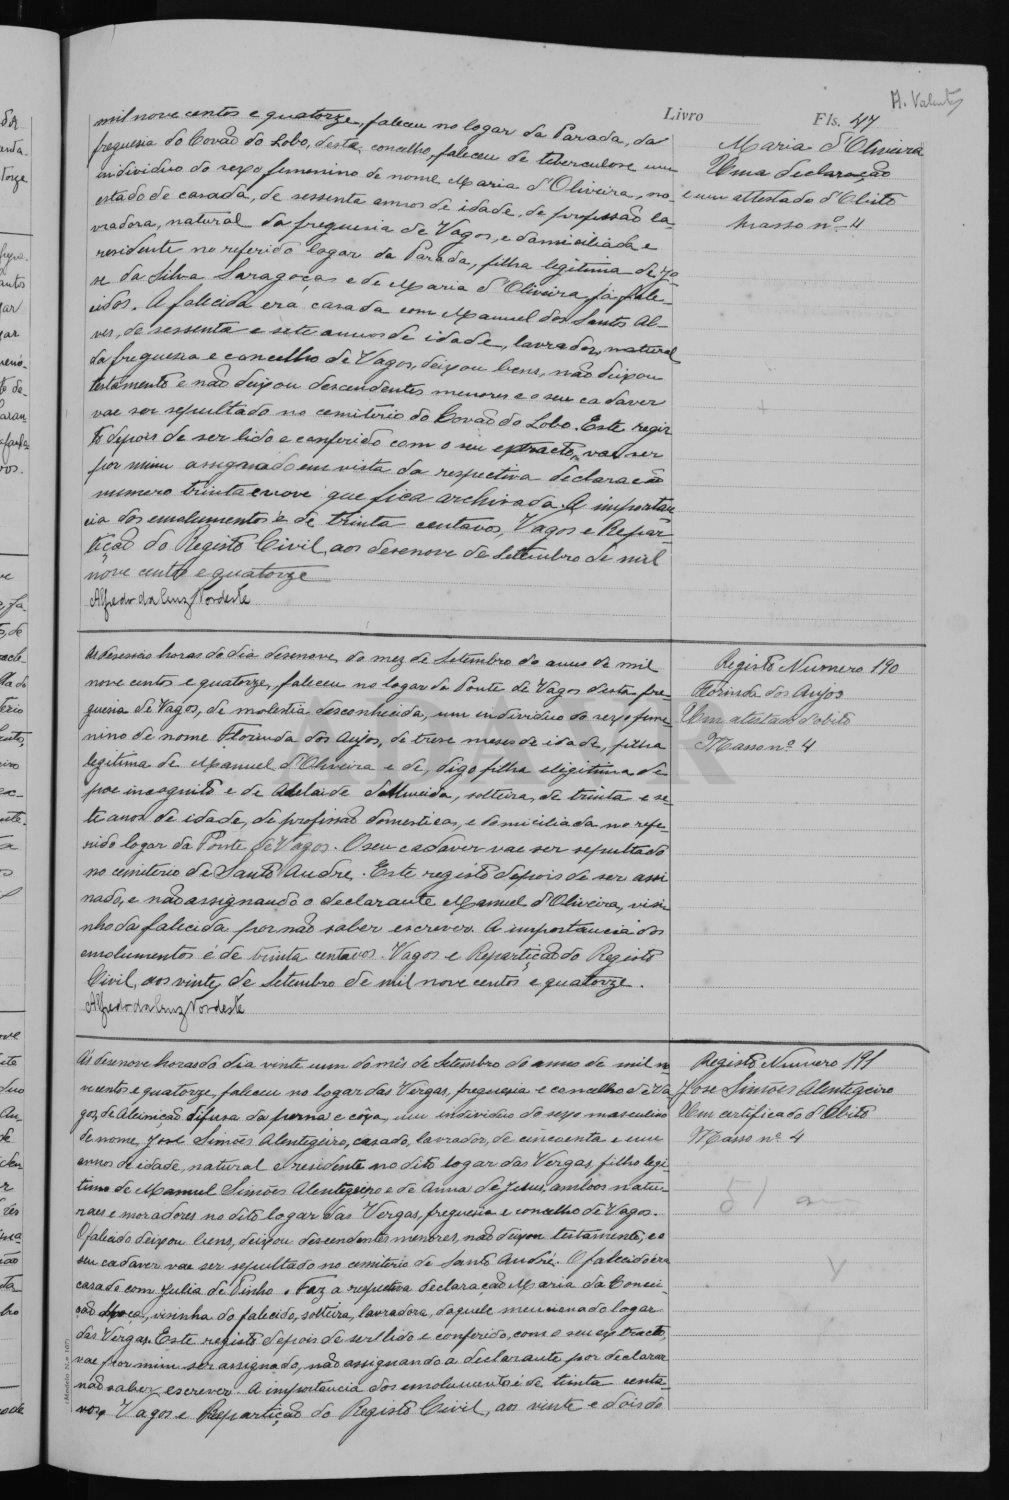 A. Valente
Livro Fls. 47
mil nove centos e quatorze, faleceu no logar da Parada, da
freguesia do Covão do Lobo, deste concelho, faleceu de tuberculose um
individuo do sexo femenino de nome Maria d'Oliveira, no
estado de casada, de sessenta annos de idade, de profissão la-
vradora, natural da freguesia de Vagos, e domiciliada e
residente no referido logar da Parada, filha legitima de Jo-
se da Silva Saragoças e de Maria d'Oliveira, já fale-
cidos. A falecida era casada com Manuel dos Santos Al-
ves, de sessenta e sete annos de idade, lavrador, natural
da freguesia e concelho de Vagos, deixou bens, não deixou
testamento e não deixou descendentes menores e o seu cadaver
vae ser sepultado no cemitério do Covão do Lobo. Este regis
to depois de ser lido e conferido com o seu extracto, vae ser
por mim assignado em vista da respectiva declaração
numero trinta e nove que fica archivada. A importan
cia dos emolumentos é de trinta centavos, Vagos e Repar-
tição do Registo Civil, aos desenove de Setembro de mil
nove cento e quatorze
Alfredo da Cruz Nordeste
Maria d'Oliveira
Uma declaração
e um attestado d'obito
Masso nº 4
As deseseis horas do dia desenove do mez de Setembro do anno de mil
nove centos e quatorze, faleceu no logar da Ponte de Vagos desta fre-
guesia de Vagos, de molestia desconhecida, um individuo do sexo feme
nino de nome Florinda dos Anjos, de trese meses de idade, filha
legitima de Manuel d'Oliveira e de, digo filha ilegitima de
pae incognito e de Adelaide d'Almeida, solteira, de trinta e se-
te anos de idade, de profissão domesticas, e domiciliada no refe-
rido logar da Ponte de Vagos. O seu cadaver vae ser sepultado
no cemiterio de Santo André. Este registo depois de ser assi
nado, e não assignando o declarante Manuel d'Oliveira, visi
nho da falecida por não saber escrever. A importancia dos
emolumentos é de trinta centavos. Vagos e Repartição do Registo
Civil, aos vinte, de Setembro de mil nove centos e quatorze.
Alfredo da Cruz Nordeste
Registo Numero 190
Florinda dos Anjos
Um atestado d'obito
Masso nº 4
Ás desenove horas do dia vinte um do mês de Setembro do anno de mil no
vecentos e quatorze, faleceu no logar das Vergas, freguesia e concelho de Va
gos, de difusa da perna e côxa, um individuo do sexo masculino
de nome José Simões Alentegeiro, casado, lavrador, de cincoenta e um
annos de idade, natural e residente no dito logar das Vergas, filho legi-
timo de Manuel Simões Alentegeiro e de Anna de Jesus, ambos natu-
raes e moradores no dito logar das Vergas, freguesia e concelho de Vagos.
O falecido deixou bens, deixou descendentes menores, não deixou testamento, e o
seu cadaver vae ser sepultado no cemiterio de Santo André. O falecido éra
casado com Julia de Pinho. Faz a respetiva declaração Maria da Concei-
ção, visinha do falecido, solteira, lavradora, daquele mencionado logar
das Vergas. Este registo depois de ser lido e conferido, com o seu extracto,
vae por mim ser assignado, não assignando a declarante por declarar
não saber escrever. A importancia dos emolumentos é de trinta centa-
vos. Vagos e Repartição do Registo Civil, aos vinte e dois do
Registo Numero 191
José Simões Alentegeiro
Um certificado d'Obito
Masso nº 4
51 an
(Modelo N.º 167)
ADAVR